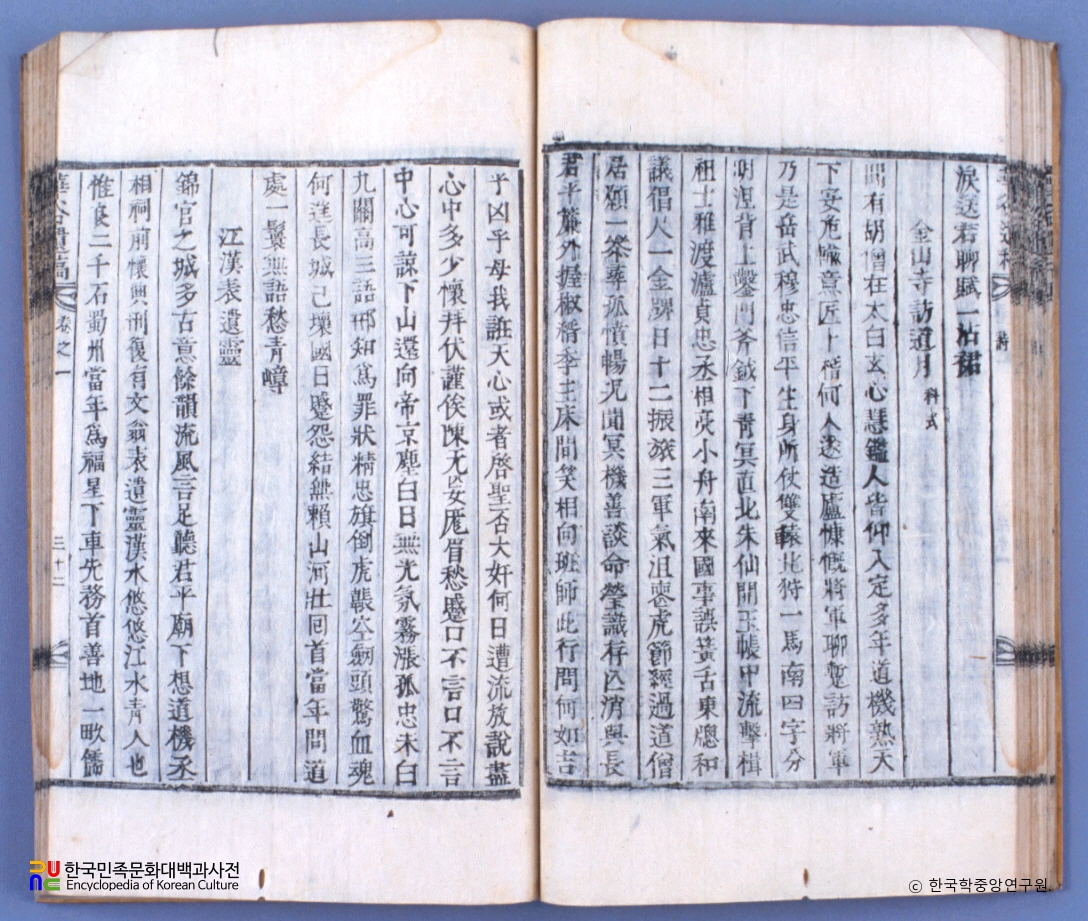 淚送君聊賦一沾裙
金山寺訪道月 科式
聞有胡僧在太白玄心慧鑑人皆仰入定多年道機熟天
下安危喩意匠十稽何人送造廬慷慨將軍聊蹔訪將軍
乃是岳武穆忠信平生身所仗雙轅北狩一馬南四字分
明涅背上鑿門斧鉞下靑冥直北朱仙開玉帳中流擊楫
祖士雅渡瀘貞忠丞相亮小舟南來國事誤簧古東牕和
議倡人一金牌日十二振旅三軍氣沮喪虎節經過道僧
居願一叅尋孤憤暢况聞冥機善談命瑩識存亾消與長
君平簾外握椒稰季主床間笑相向班師此行問何如吉
乎凶乎母我誑天心或者啓聖否大奸何日遭流放說盡
心中多少懷拜伏謹俟陳无妄厖眉愁蹙口不言口不言
中心可諒下山還向帝京塵白日無光氛霧漲孤忠未白
九關高三語那知爲罪狀精忠旗倒虎韔空劒頭驚血魂
何逹長城已壞國日蹙怨結無賴山河壯回首當年問道
處一鬟無語愁青嶂
江漢表遺靈
錦官之城多古意餘韻流風言足聽君平廟下想道機丞
相祠前懷興刑復有文翁表遺靈漢水悠悠江水青人也
惟良二千石蜀州當年爲福星下車先務首善地一畝儒
卷之一
三十二
詩
한국민족문화대백과사전
Encyclopedia of Korean Culture
ⓒ 한국학중앙연구원